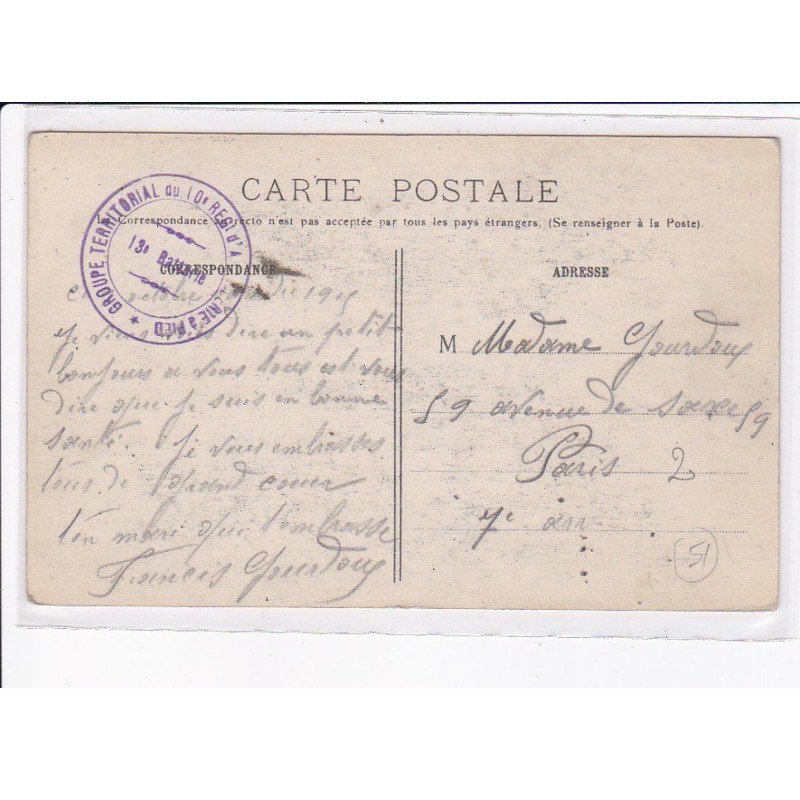 CARTE POSTALE
La Correspondance au recto n'est pas acceptée par tous les pays étrangers. (Se renseigner à la Poste).
GROUPE TERRITORIAL du 10e REGt d'A PIED
13e Batterie
CORRESPONDANCE
1915
Je viens dire un petit
bonjours a vous tous est vous
dire que je suis en bonne
santé. Je vous embrasses
tous de grand coeur
ton mari que t'embrasse
Francis Gourdoux
ADRESSE
M Madame Gourdoux
59 avenue de saxe 59
Paris
7e arr
51